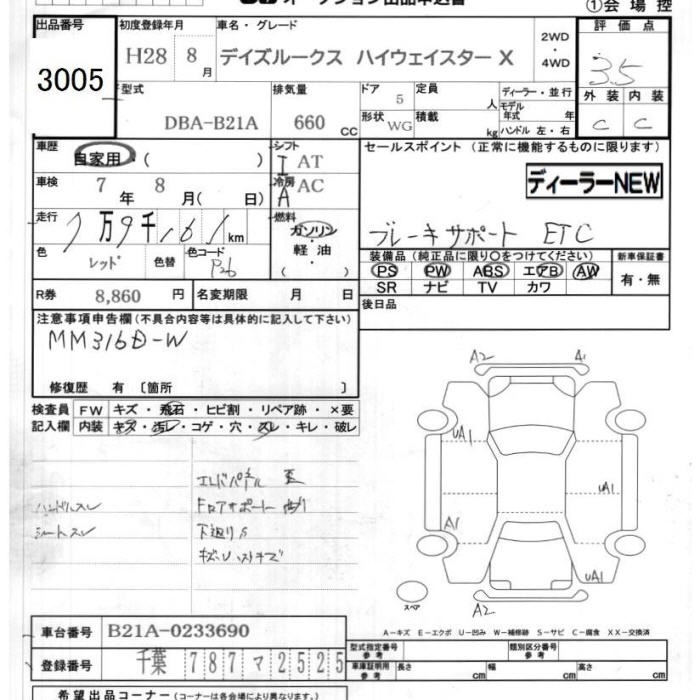 オークション出品申込書
①会場控
出品番号
3005
初度登録年月
H28 8月
車名・グレード
デイズルークス ハイウェイスターX
2WD・4WD
評価点
3.5
外装 内装
C C
型式
DBA-B21A
排気量
660 CC
ドア
5
定員
人
形状
WG
積載
kg
ディーラー・並行
モデル年式 年
ハンドル 左・右
車歴
自家用・( )
シフト
I AT
車検
7年 8月( 日)
冷房
A AC
走行
7万9千161km
燃料
ガソリン・軽油・
色
レッド
色替
色コード
R券
8,860円
名変期限 月 日
セールスポイント (正常に機能するものに限ります)
ディーラーNEW
ブレーキサポート ETC
装備品 (純正品に限り○をつけてください)
PS PW ABS エアB AW
SR ナビ TV カワ
新車保証書
有・無
後日品
注意事項申告欄(不具合内容等は具体的に記入して下さい)
MM316D-W
修復歴 有 〔箇所 〕
検査員記入欄
FW キズ・飛石・ヒビ割・リペア跡・×要
内装 キズ・汚レ・コゲ・穴・スレ・キレ・破レ
ハンドルスレ
シートスレ
下廻りS
A2 A1
UA1
UA1
A1
UA1
A2
スペア
A-キズ E-エクボ U-凹み W-補修跡 S-サビ C-腐食 XX-交換済
車台番号
B21A-0233690
登録番号
千葉 787 マ 2525
型式指定番号 参考
類別区分番号 参考
車庫証明用 参考
長さ cm 幅 cm 高さ cm
希望出品コーナー (コーナーは各会場により異なります。)